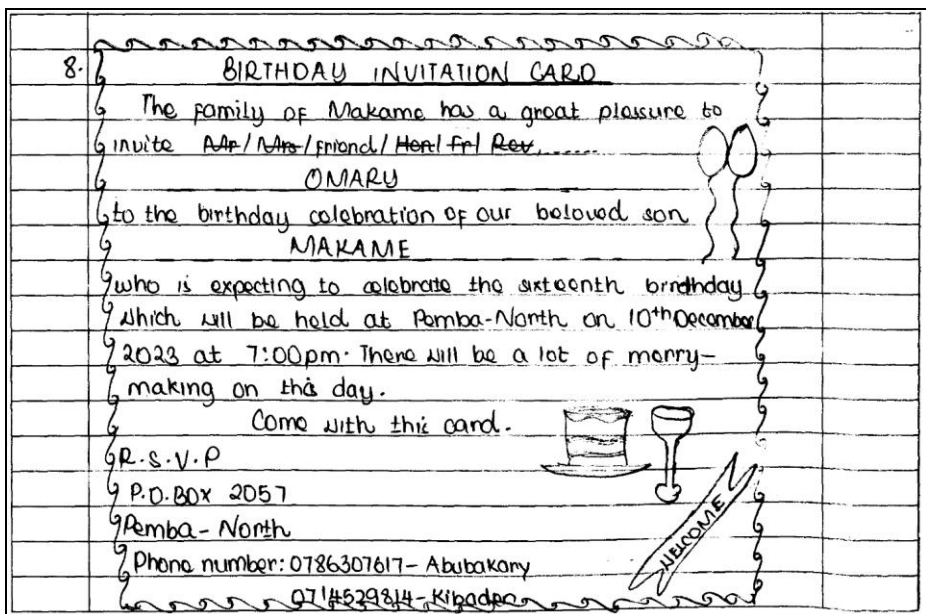 8.
BIRTHDAY INVITATION CARD
The family of Makame has a great plessure to
invite Mr/Mrs/friend/Hon/Fr/Rev.......
OMARY
to the birthday celebration of our beloved son
MAKAME
who is expecting to celebrate the sixteenth birdthday
which will be held at Pemba-North on 10th December
2023 at 7:00pm. There will be a lot of merry-
making on this day.
Come with this card.
R.S.V.P
P.O.BOX 2057
Pemba-North
WELCOME
Phone number: 0786307617- Abubakary
0714529814-Kibaden